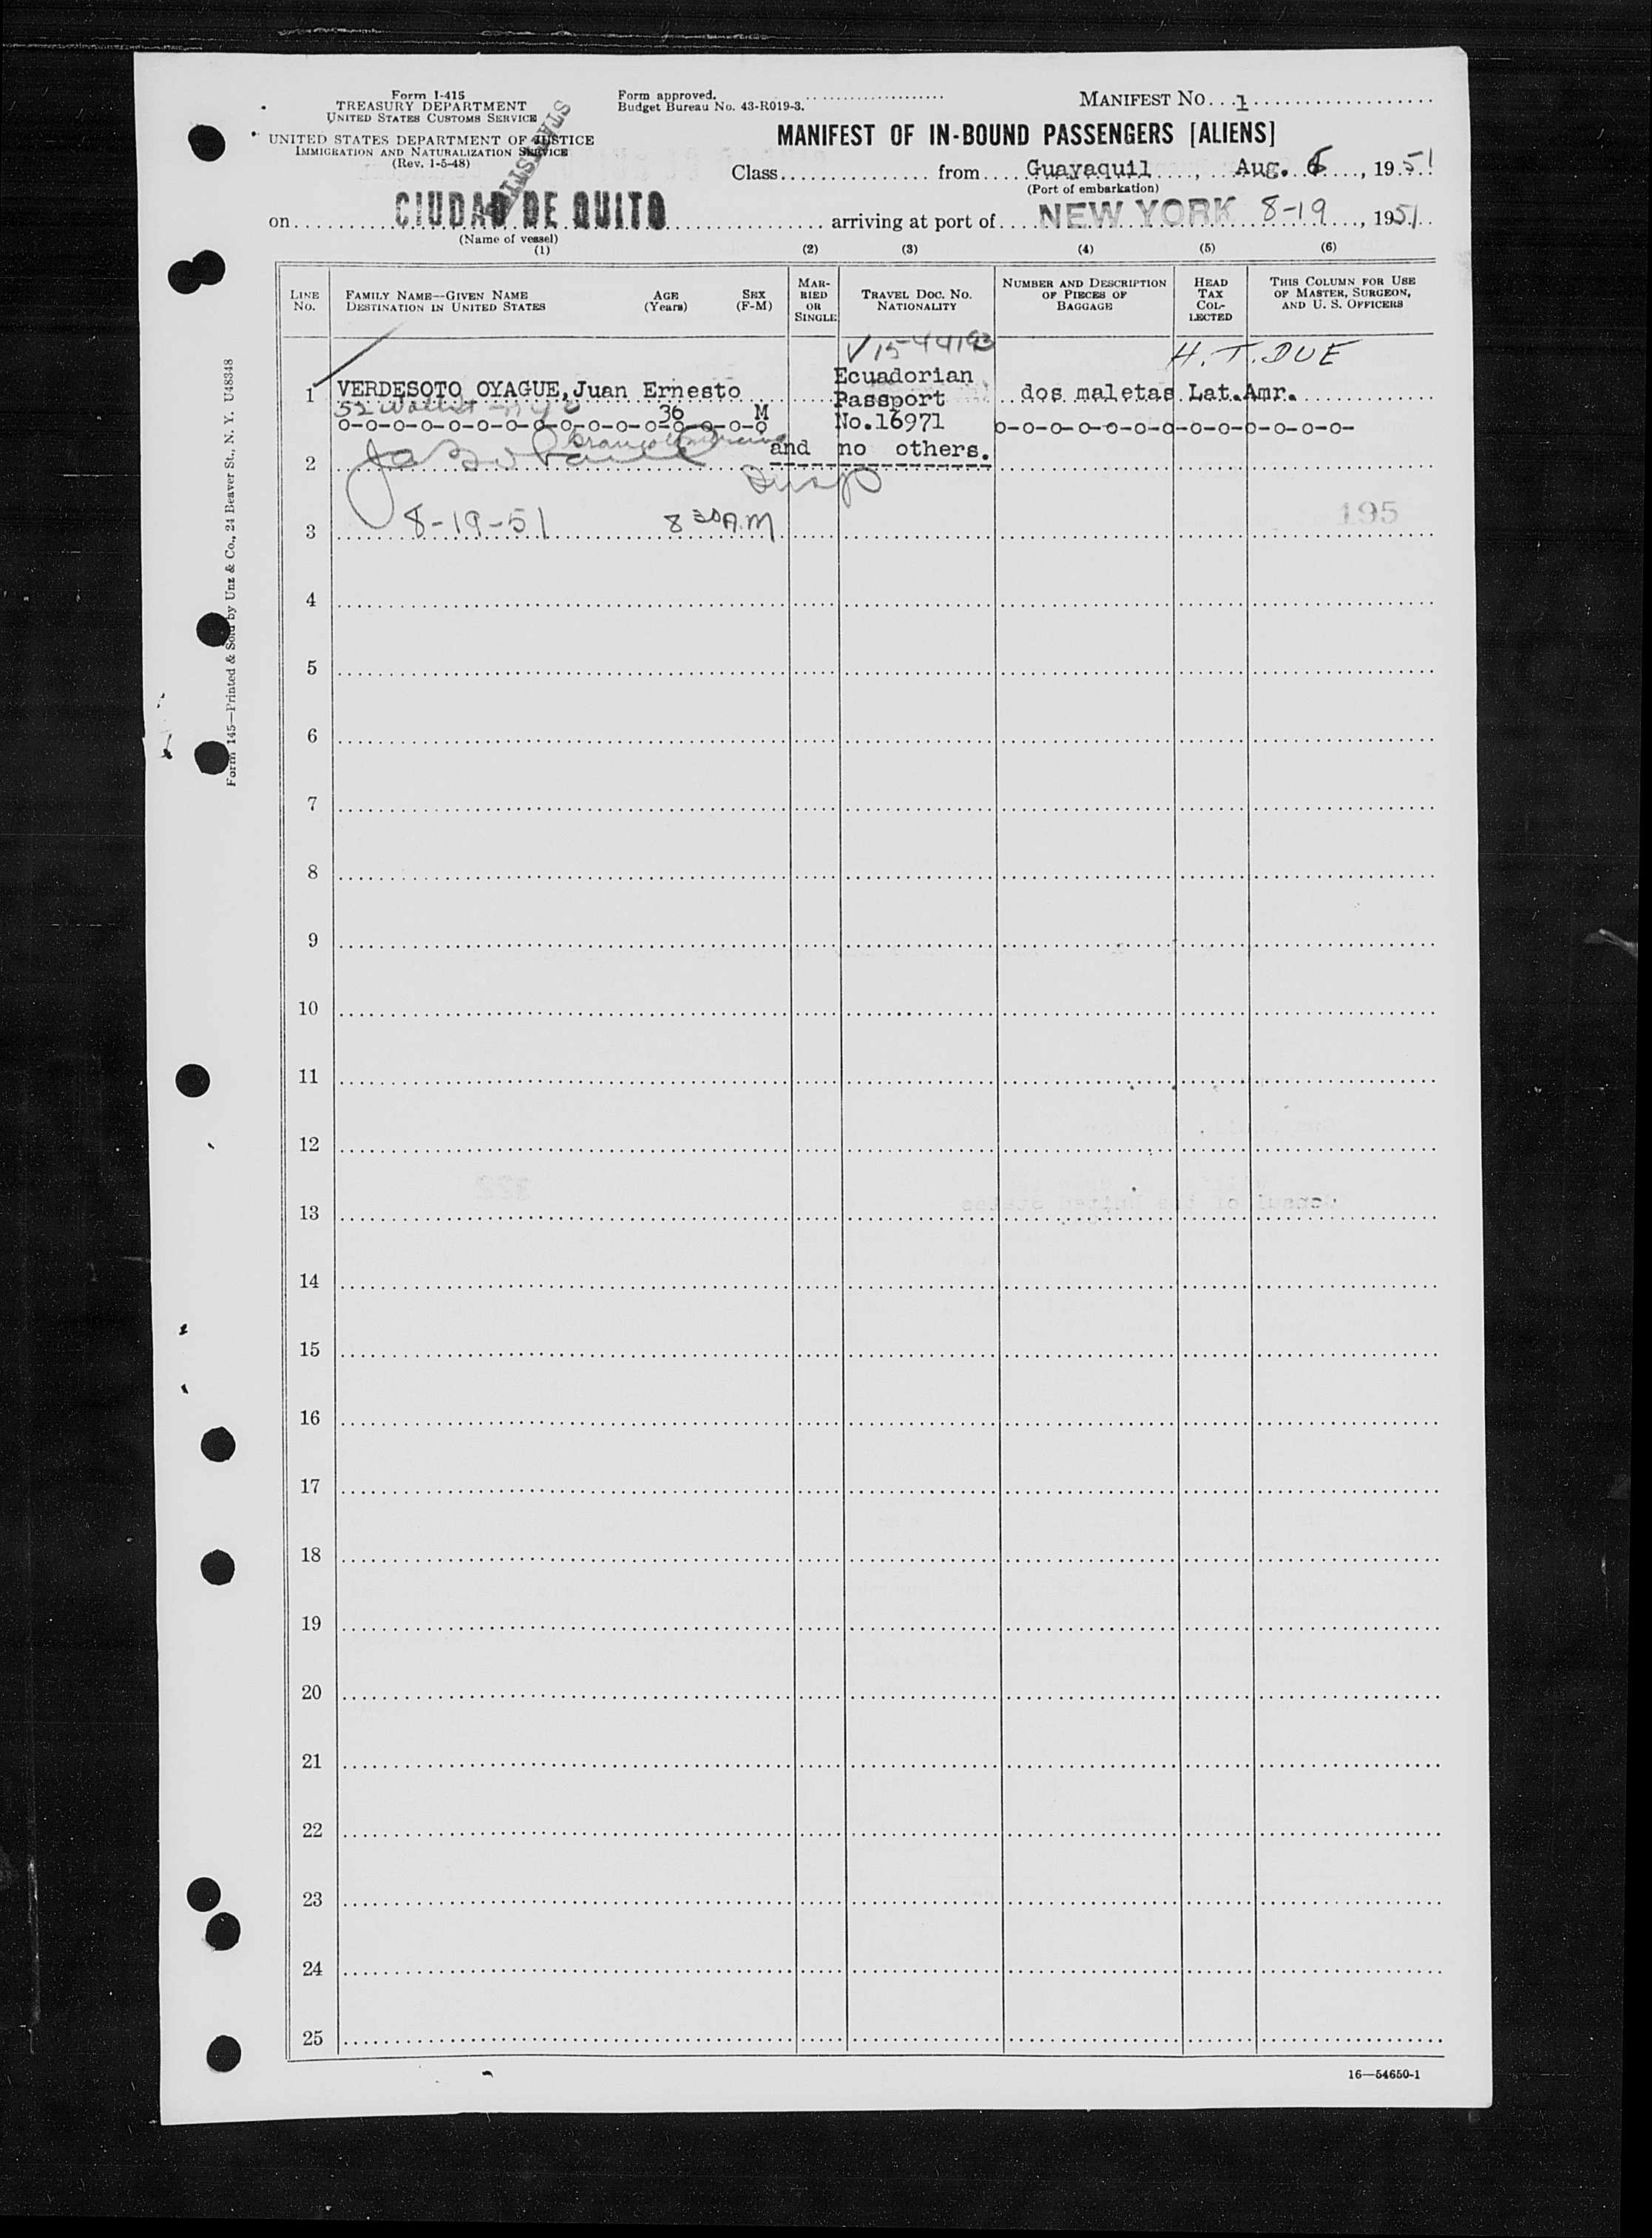 Form I-415
TREASURY DEPARTMENT
UNITED STATES CUSTOMS SERVICE
UNITED STATES DEPARTMENT OF JUSTICE
IMMIGRATION AND NATURALIZATION SERVICE
(Rev. 1-5-48)
STATISTICS
Form approved.
Budget Bureau No. 43-R019-3.
MANIFEST NO. 1
MANIFEST OF IN-BOUND PASSENGERS [ALIENS]
Class from Guayaquil, Aug. 6, 1951
(Port of embarkation)
on CIUDAD DE QUITO arriving at port of NEW YORK 8-19, 1951
(Name of vessel)
(1) (2) (3) (4) (5) (6)
LINE No.
FAMILY NAME—GIVEN NAME DESTINATION IN UNITED STATES
AGE (Years)
SEX (F-M)
MARRIED OR SINGLE
TRAVEL DOC. NO. NATIONALITY
NUMBER AND DESCRIPTION OF PIECES OF BAGGAGE
HEAD TAX COLLECTED
THIS COLUMN FOR USE OF MASTER, SURGEON, AND U. S. OFFICERS
H. T. DUE
Ecuadorian
1 VERDESOTO OYAGUE, Juan Ernesto Passport dos maletas Lat.Amr.
36 M No.16971
o-o-o-o-o-o-o-o-o-o-o-o-o-o-o-o o-o-o-o-o-o-o-o-o-o-o-o-o-
and no others.
2
195
3 8-19-51 8 30 A.M
4
5
6
7
8
9
10
11
12
13
14
15
16
17
18
19
20
21
22
23
24
25
16—54650-1
Form 145—Printed & Sold by Unz & Co., 24 Beaver St., N. Y. U48348